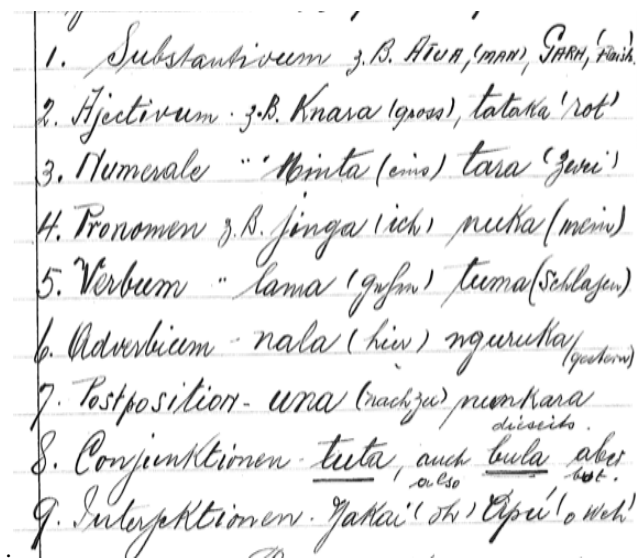 1. Substantivum z.B. ATUA, (MAN), GARA, 'Fleish.
2. Ajectivum - z.B. Knara (gross), tataka 'rot'
3. Numerale " Ninta (eins) tara (zwei)
4. Pronomen z.B. jinga (ich) nuka (mein)
5. Verbum " lama (gehen) tuma (schlagen)
6. Adverbium - nala (hier) nguruka (gestern)
7. Postposition - una (nach zu) nunkara
diesseits.
8. Conjunktionen - tuta, auch bula aber
also but.
9. Interjektionen - Jakai! (oh) Apú! o weh!